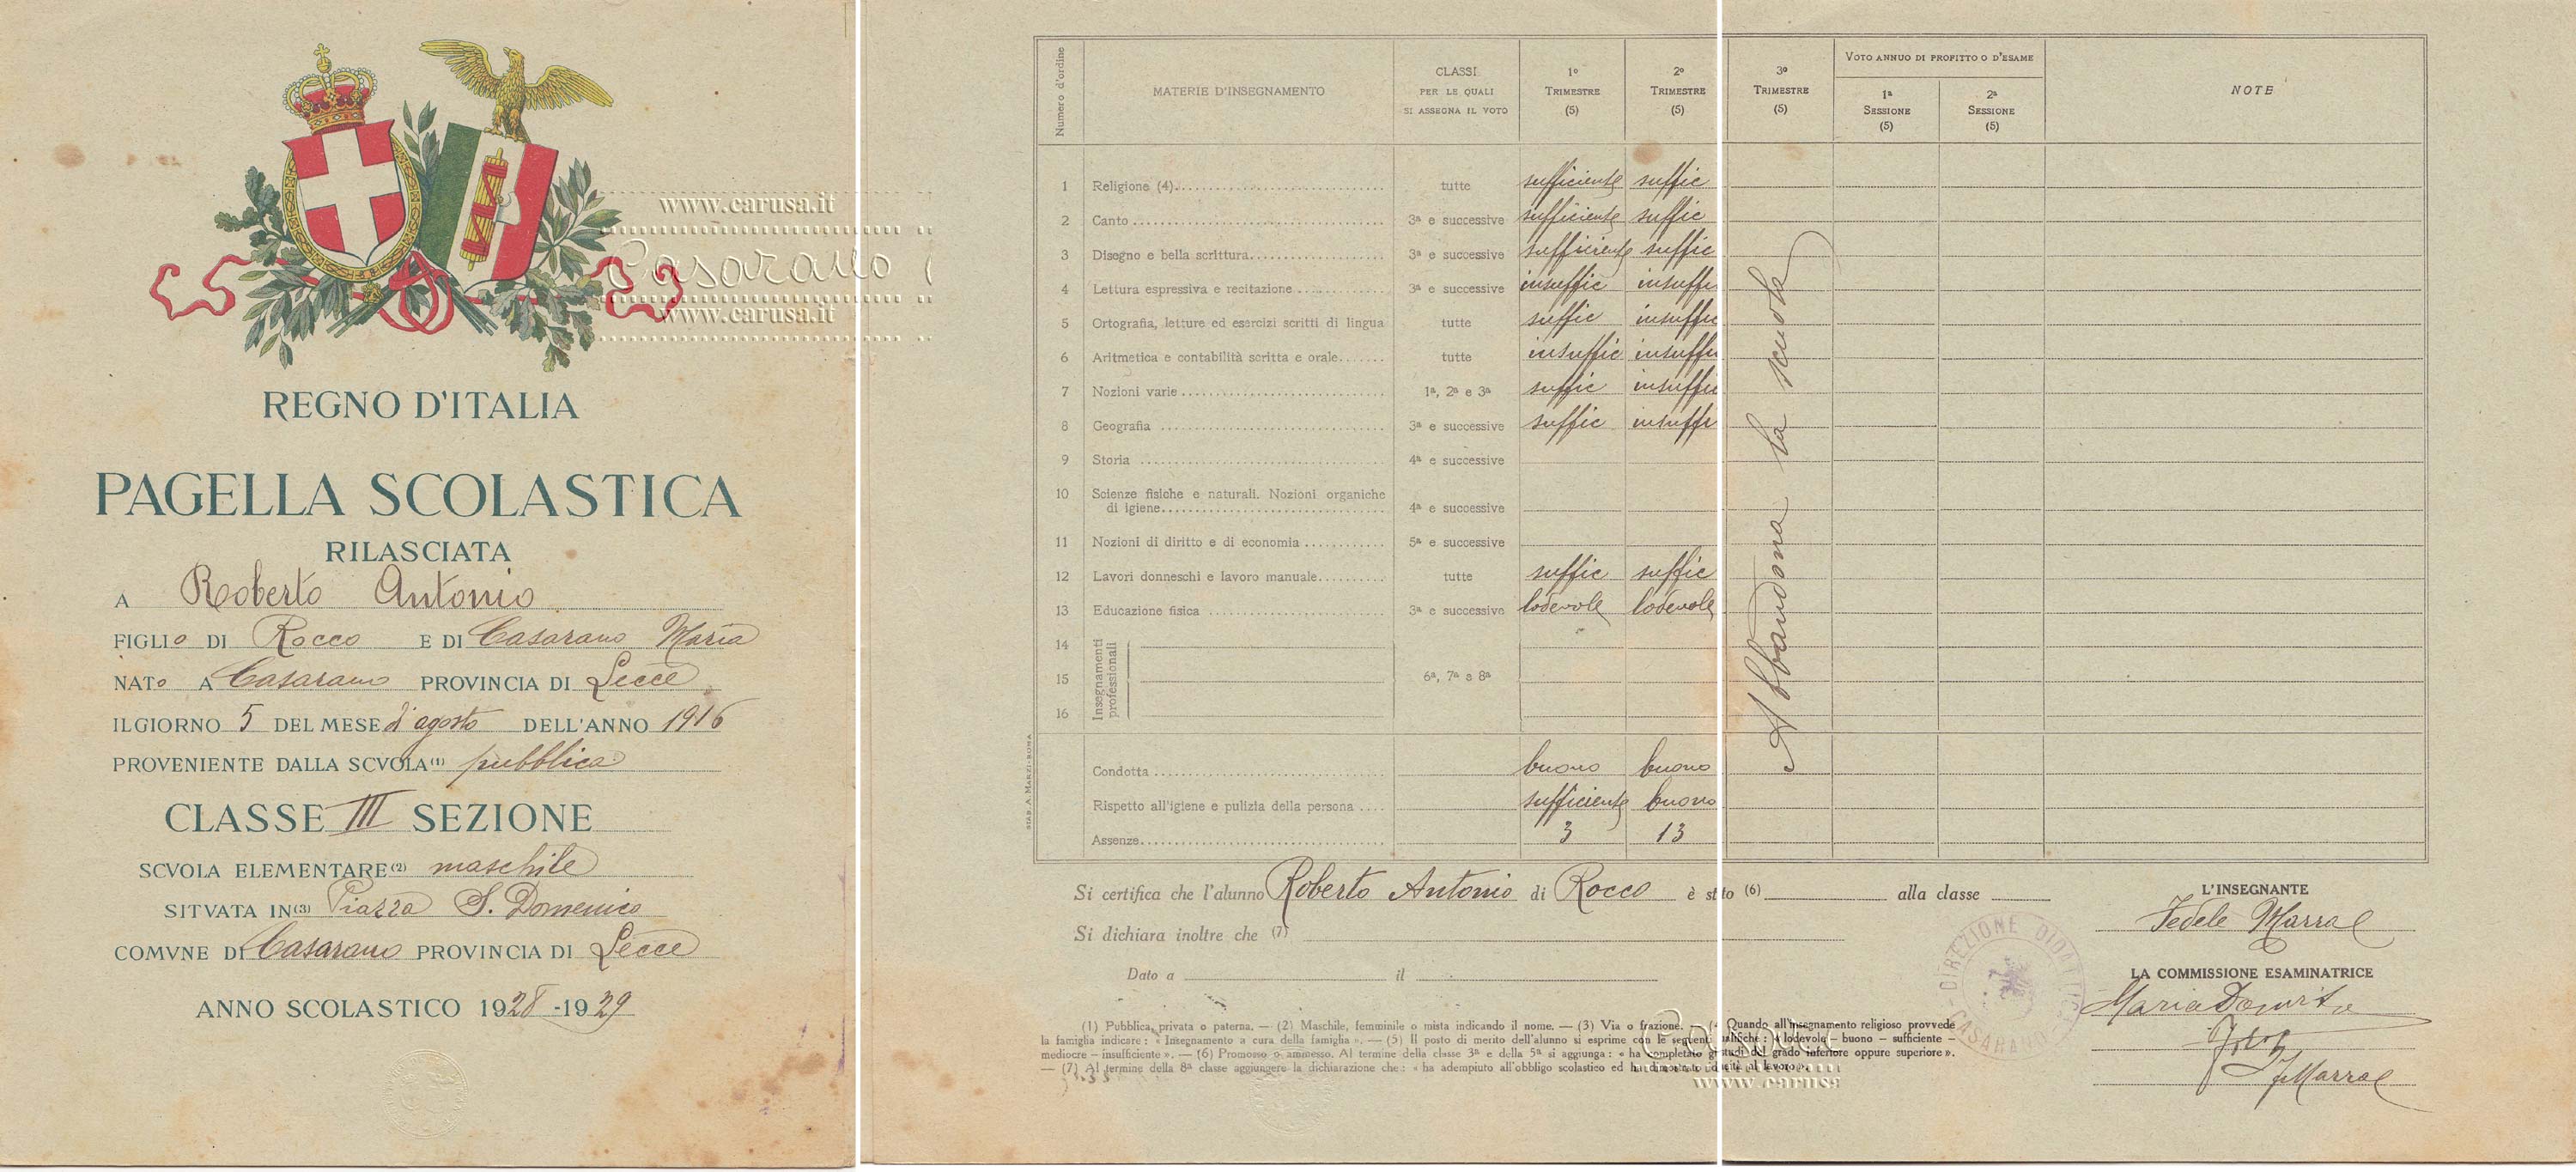 www.carusa.it
Casarano
www.carusa.it
REGNO D'ITALIA
PAGELLA SCOLASTICA
RILASCIATA
A Roberto Antonio
FIGLIO DI Rocco E DI Casarano Maria
NATO A Casarano PROVINCIA DI Lecce
IL GIORNO 5 DEL MESE d'agosto DELL'ANNO 1916
PROVENIENTE DALLA SCVOLA (1) pubblica
CLASSE III SEZIONE
SCVOLA ELEMENTARE (2) maschile
SITVATA IN (3) Piazza S. Domenico
COMVNE DI Casarano PROVINCIA DI Lecce
ANNO SCOLASTICO 1928-1929
Numero d'ordine MATERIE D'INSEGNAMENTO CLASSI PER LE QUALI SI ASSEGNA IL VOTO 1º TRIMESTRE (5) 2º TRIMESTRE (5) 3º TRIMESTRE (5) VOTO ANNUO DI PROFITTO O D'ESAME 1ª SESSIONE (5) 2ª SESSIONE (5) NOTE
1 Religione (4) tutte sufficiente suffic
2 Canto 3ª e successive sufficiente suffic
3 Disegno e bella scrittura 3ª e successive sufficiente suffic
4 Lettura espressiva e recitazione 3ª e successive insuffic insuffi
5 Ortografia, letture ed esercizi scritti di lingua tutte suffic insuffic
6 Aritmetica e contabilità scritta e orale tutte insuffic insuffi
7 Nozioni varie 1ª, 2ª e 3ª suffic insuffi
8 Geografia 3ª e successive suffic insuffi
9 Storia 4ª e successive
10 Scienze fisiche e naturali. Nozioni organiche
di igiene 4ª e successive
11 Nozioni di diritto e di economia 5ª e successive
12 Lavori donneschi e lavoro manuale tutte suffic suffic
13 Educazione fisica 3ª e successive lodevole lodevole
14
15 Insegnamenti professionali 6ª, 7ª e 8ª
16
Abbandona la scuola
Condotta buono buono
Rispetto all'igiene e pulizia della persona sufficiente buono
Assenze 3 13
STAB. A. MARZI-ROMA
Si certifica che l'alunno Roberto Antonio di Rocco è stato (6) alla classe
Si dichiara inoltre che (7)
Dato a il
L'INSEGNANTE
Fedele Marra
LA COMMISSIONE ESAMINATRICE
Maria
F Marra
DIREZIONE DIDATTICA
CASARANO
(1) Pubblica, privata o paterna. — (2) Maschile, femminile o mista indicando il nome. — (3) Via o frazione. — (4 Quando all'insegnamento religioso provvede
la famiglia indicare: « Insegnamento a cura della famiglia ». — (5) Il posto di merito dell'alunno si esprime con le seguenti qualifiche: « lodevole – buono – sufficiente –
mediocre – insufficiente ». — (6) Promosso o ammesso. Al termine della classe 3ª e della 5ª si aggiunga: « ha completato gli studi del grado inferiore oppure superiore ».
— (7) Al termine della 8ª classe aggiungere la dichiarazione che: « ha adempiuto all'obbligo scolastico ed ha dimostrato idoneità al lavoro ».
Casarano
www.carusa